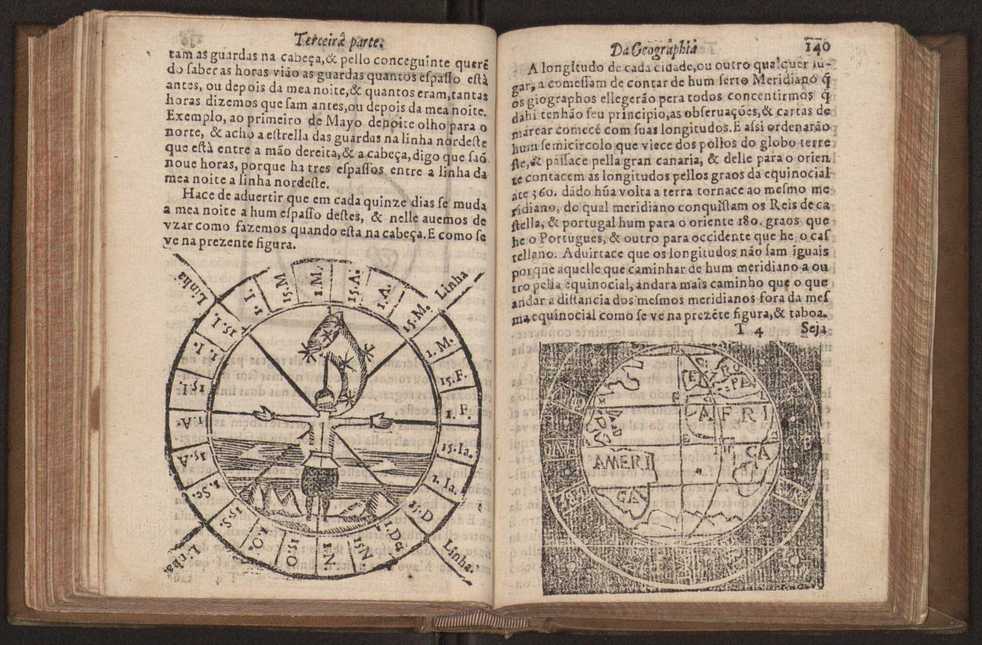 Terceira parte.
tam as guardas na cabeça,& pello conceguinte querẽ
do saber as horas vião as guardas quantos espasso està
antes, ou depois da mea noite,& quantos eram,tantas
horas dizemos que sam antes,ou depois da mea noite.
Exemplo, ao primeiro de Mayo denoite olho para o
norte, & acho a estrella das guardas na linha nordeste
que està entre a mão dereita,& a cabeça, digo que saõ
noue horas, porque ha tres espassos entre a linha da
mea noite a linha nordeste.
Hace de aduertir que em cada quinze dias se muda
a mea noite a hum espasso destes, & nelle auemos de
vzar como fazemos quando esta na cabeça. E como se
ve na prezente figura.
Linha
Linha
Linha
Linha.
1.M.
15.A.
1.A.
15.M.
1.M.
15.F.
1.F.
15.Ia.
1.Ia.
15.D
1.De
15.N.
1.N
15.O
1.O.
15.S.
1.Se.
15.A
1.A.
15.I
1.I.
15.I.
1.I.
15.M
Da Geographia
140
A longitudo de cada cidade,ou outro qualquer lu-
gar, a comessam de contar de hum serto Meridiano q̃
os giographos ellegerão pera todos concentirmos q̃
dahi tenhão seu principio,as obseruações,& cartas de
marear comecẽ com suas longitudos. E assi ordenarão
hum semicirculo que viece dos pollos do globo terre
ste,& passace pella gran canaria, & delle para o orien
te contacem as longitudos pellos graos da equinocial
ate 360. dādo hũa volta a terra tornace ao mesmo me
ridiano, do qual meridiano conquistam os Reis de ca
stella, & portugal hum para o oriente 180. graos que
he o Portugues, & outro para occidente que he o cas
tellano. Aduirtace que os longitudos não sam iguais
porque aquelle que caminhar de hum meridiano a ou
tro pella equinocial, andara mais caminho que o que
andar a distancia dos mesmos meridianos fora da mes
ma equinocial como se ve na prezẽte figura,& taboa.
T 4 Seja
E RO
PA
AFRI
CA
AMERI
CA